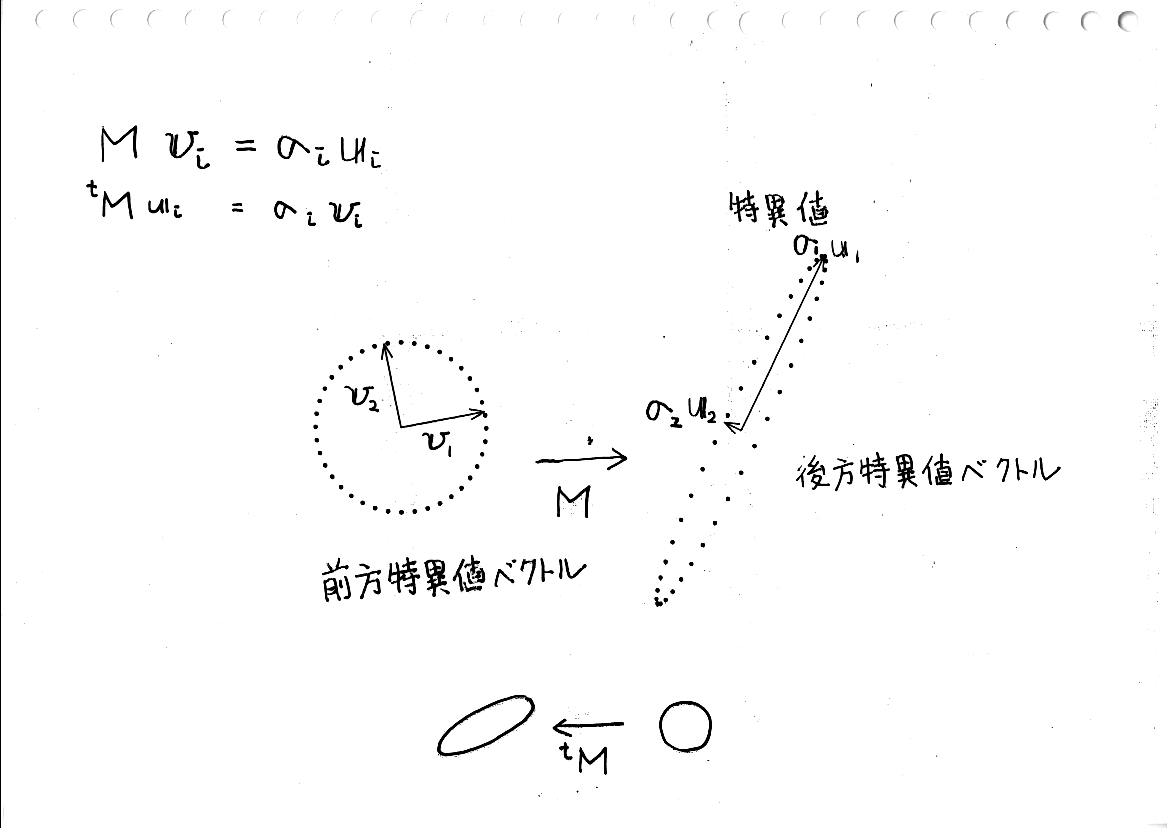 M 𝕧ᵢ = σᵢ 𝕦ᵢ
ᵗM 𝕦ᵢ = σᵢ 𝕧ᵢ
特異値
σ₁ 𝕦₁
𝕧₂
𝕧₁
σ₂ 𝕦₂
M
後方特異値ベクトル
前方特異値ベクトル
ᵗM